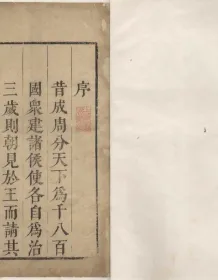 序
昔成周分天下爲千八百
國衆建諸侯使各自爲治
三歲則朝見於王而請其